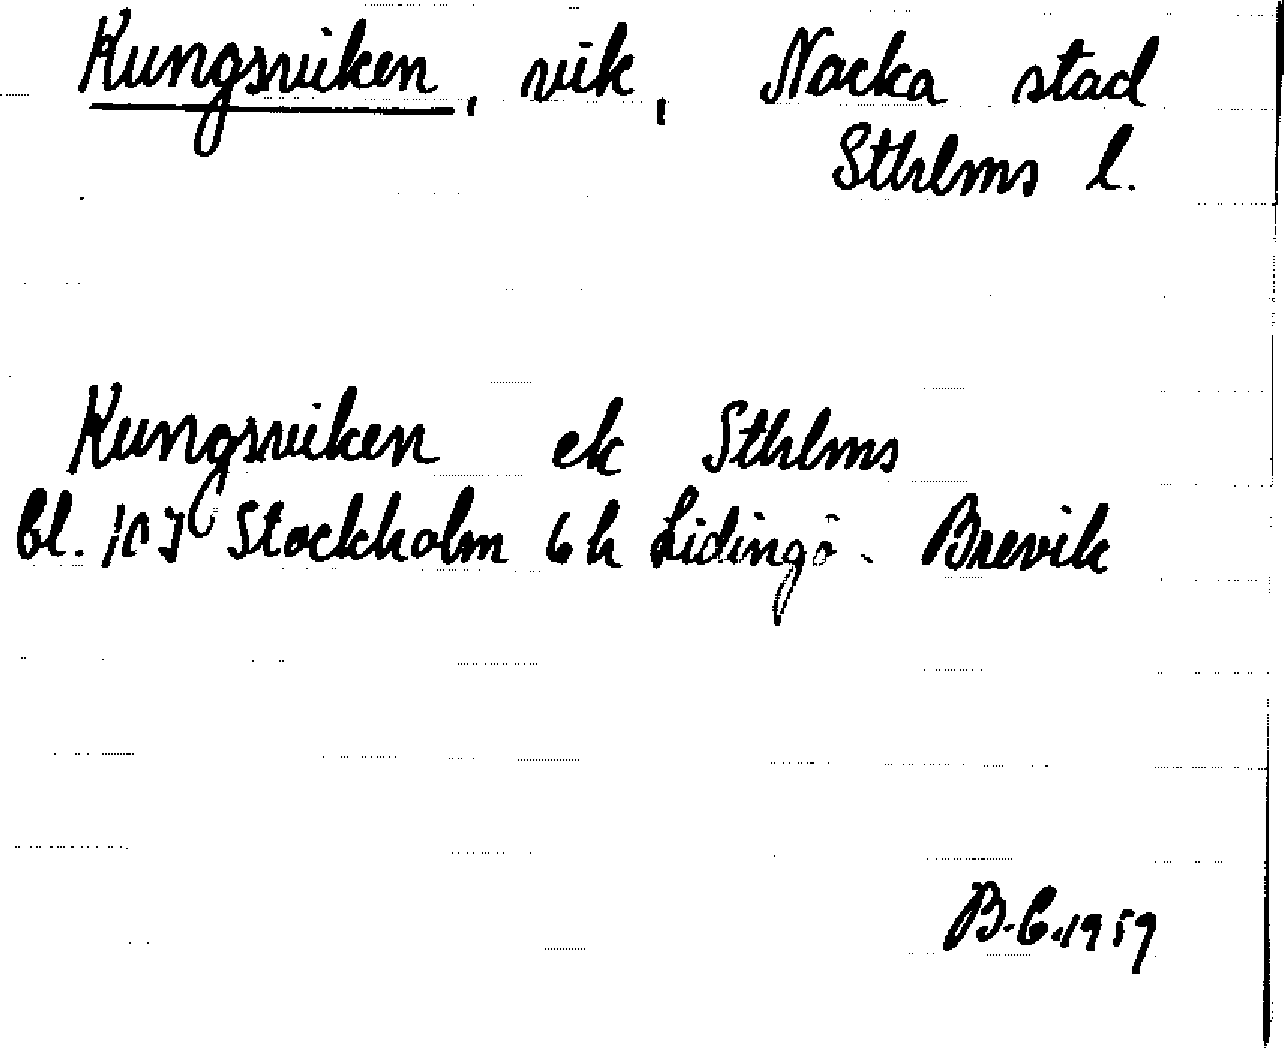 Kungsviken, vik, Nacka stad
Sthlms l.
Kungsviken ek Sthlms
bl. 10I Stockholm 6h Lidingö - Brevik
B.C.1959